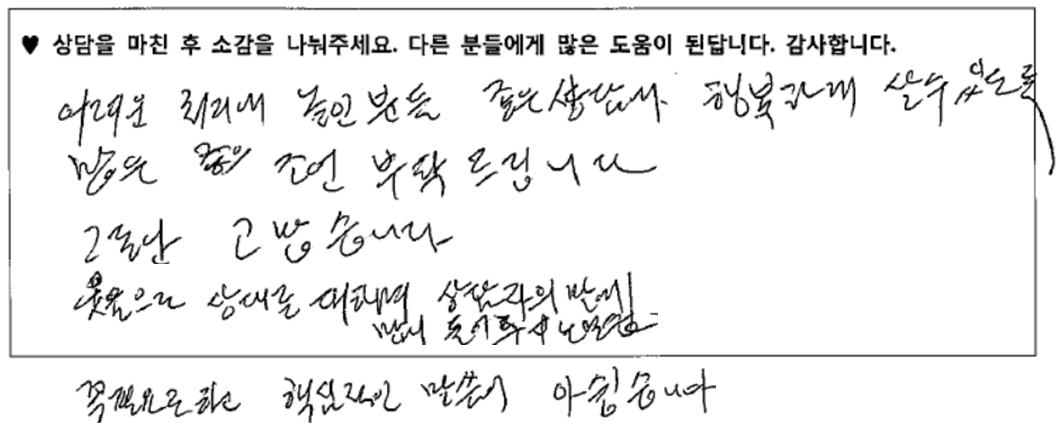 ♥ 상담을 마친 후 소감을 나눠주세요. 다른 분들에게 많은 도움이 된답니다. 감사합니다.
어려운 처리에 놓인 분들 좋은 상담사 행복하게 살수 있도록
많은 조언 부탁드립니다
그동안 고맙습니다
웃음으로 상대를 대하며 상담자의 말에
꼭 필요로 하는 핵심적인 말씀이 아쉽습니다